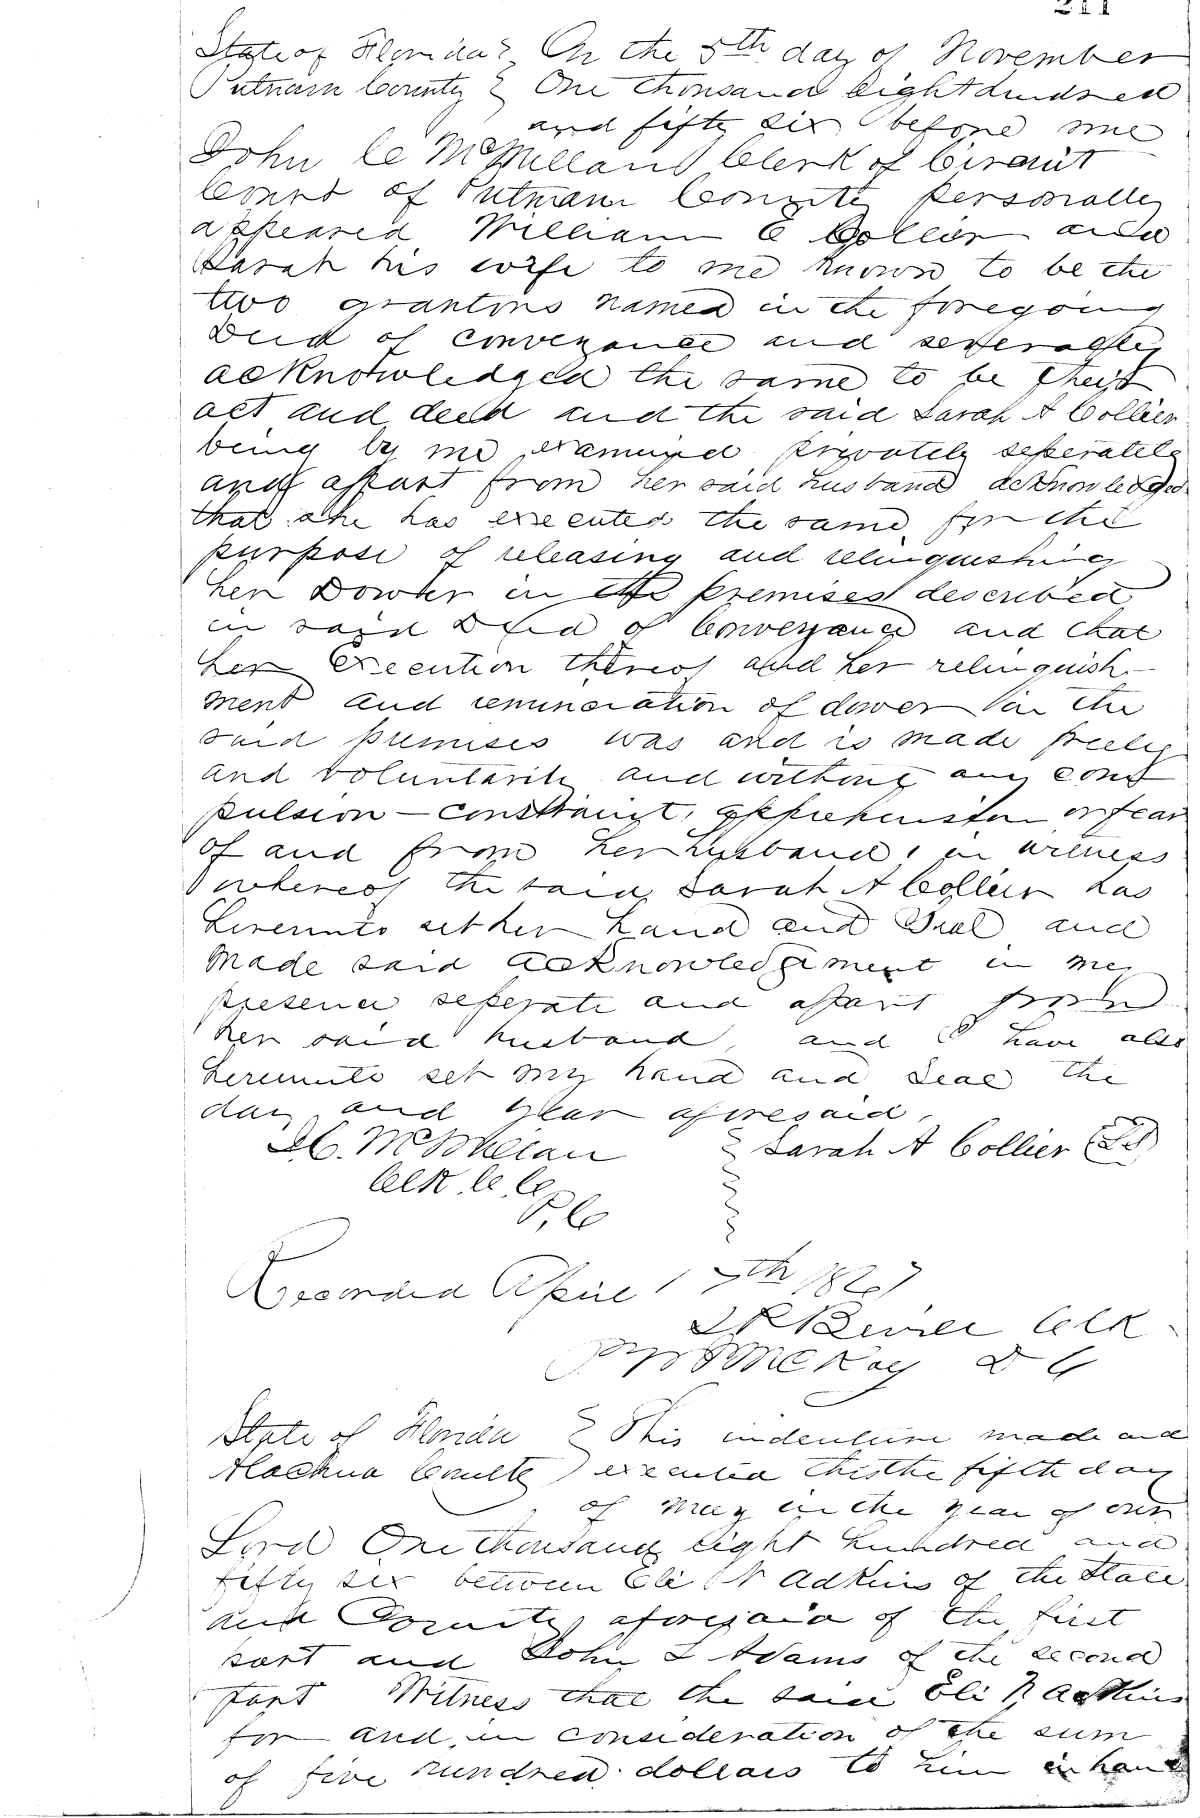 211
State of Florida } On the 5th day of November
Putnam County } One thousand eight hundred
and fifty six before me
John C McMillan Clerk of Circuit
Court of Putnam County personally
appeared William E Collier and
Sarah his wife to me known to be the
two grantors named in the foregoing
Deed of conveyance and severally
acknowledged the same to be their
act and deed and the said Sarah A Collier
being by me examined privately seperately
and apart from her said husband acknowledged
that she has executed the same for the
purpose of releasing and relinquishing
her Dower in the premises described
in said Deed of Conveyance and that
her Execution thereof and her relinquish-
ment and renunciation of dower in the
said premises was and is made freely
and voluntarily and without any com
pulsion – constraint, apprehension or fear
of and from her husband, in witness
whereof the said Sarah A Collier has
hereunto set her hand and Seal and
made said acknowledgement in my
presence seperate and apart from
her said husband, and I have also
hereunto set my hand and Seal the
day and year aforesaid,
J C. McMillan } Sarah A Collier (LS)
Clk. C. C.
P. C
Recorded April 17th 1867
Clk
McKay D C
State of Florida } This indenture made and
Alachua County } executed this the fifth day
of May in the year of our
Lord One thousand eight hundred and
fifty six between Eli N Adkins of the State
and County aforesaid of the first
part and John L Adams of the second
part Witness that the said Eli N Adkins
for and in consideration of the sum
of five hundred dollars to him in hand